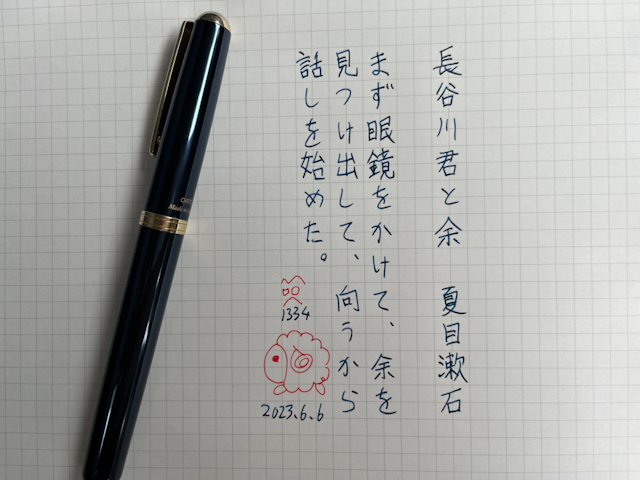 長谷川君と余　夏目漱石
まず眼鏡をかけて、余を
見つけ出して、向うから
話しを始めた。
1334
2023.6.6